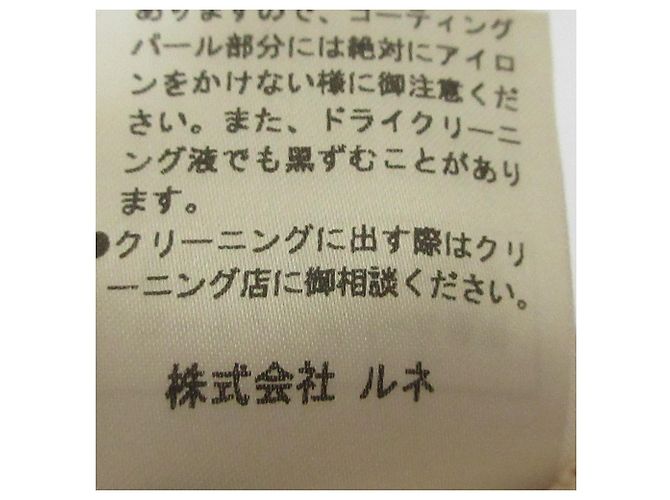 ありますので、コーティング
パール部分には絶対にアイロ
ンをかけない様に御注意くだ
さい。また、ドライクリーニ
ング液でも黒ずむことがあり
ます。
●クリーニングに出す際はクリ
ーニング店に御相談ください。
株式会社 ルネ